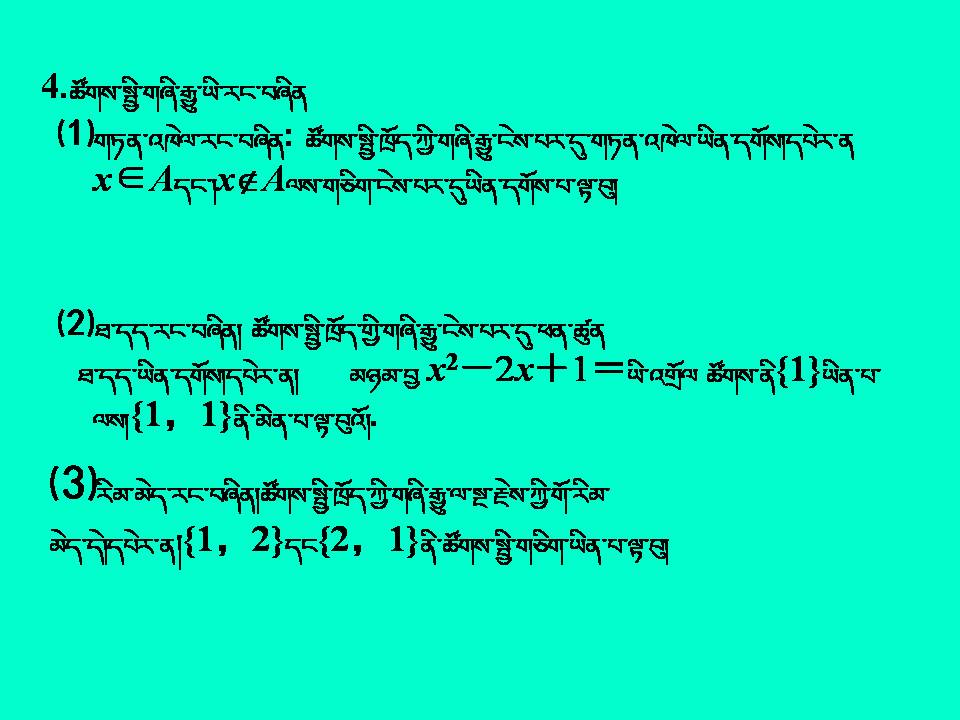 4.ཚོགས་སྤྱི་གཞི་རྒྱུ་ཡི་རང་བཞིན
(1)གཏན་འཁེལ་རང་བཞིན: ཚོགས་སྤྱི་ཁྲོད་ཀྱི་གཞི་རྒྱུ་ངེས་པར་དུ་གཏན་འཁེལ་ཡིན་དགོས།དཔེར་ན
x∈Aདང་།x∉Aལས་གཅིག་ངེས་པར་དུཡིན་དགོས་པ་ལྟ་བུ།
(2)ཐ་དད་རང་བཞིན། ཚོགས་སྤྱི་ཁྲོད་ཀྱི་གཞི་རྒྱུ་ངེས་པར་དུ་ཕན་ཚུན
ཐ་དད་ཡིན་དགོས།དཔེར་ན། མཉམ་བྱ x²－2x＋1＝ཡི་འགྲོལ ཚོགས་ནི{1}ཡིན་པ་
ལས།{1，1}ནི་མིན་པ་ལྟ་བུའོ།.
(3)རིམ་མེད་རང་བཞིན།ཚོགས་སྤྱི་ཁྲོད་ཀྱི་གཞི་རྒྱུ་ལ་སྔ་རྗེས་ཀྱི་གོ་རིམ་
མེད་དེ།དཔེར་ན།{1，2}དང{2，1}ནི་ཚོགས་སྤྱི་གཅིག་ཡིན་པ་ལྟ་བུ།